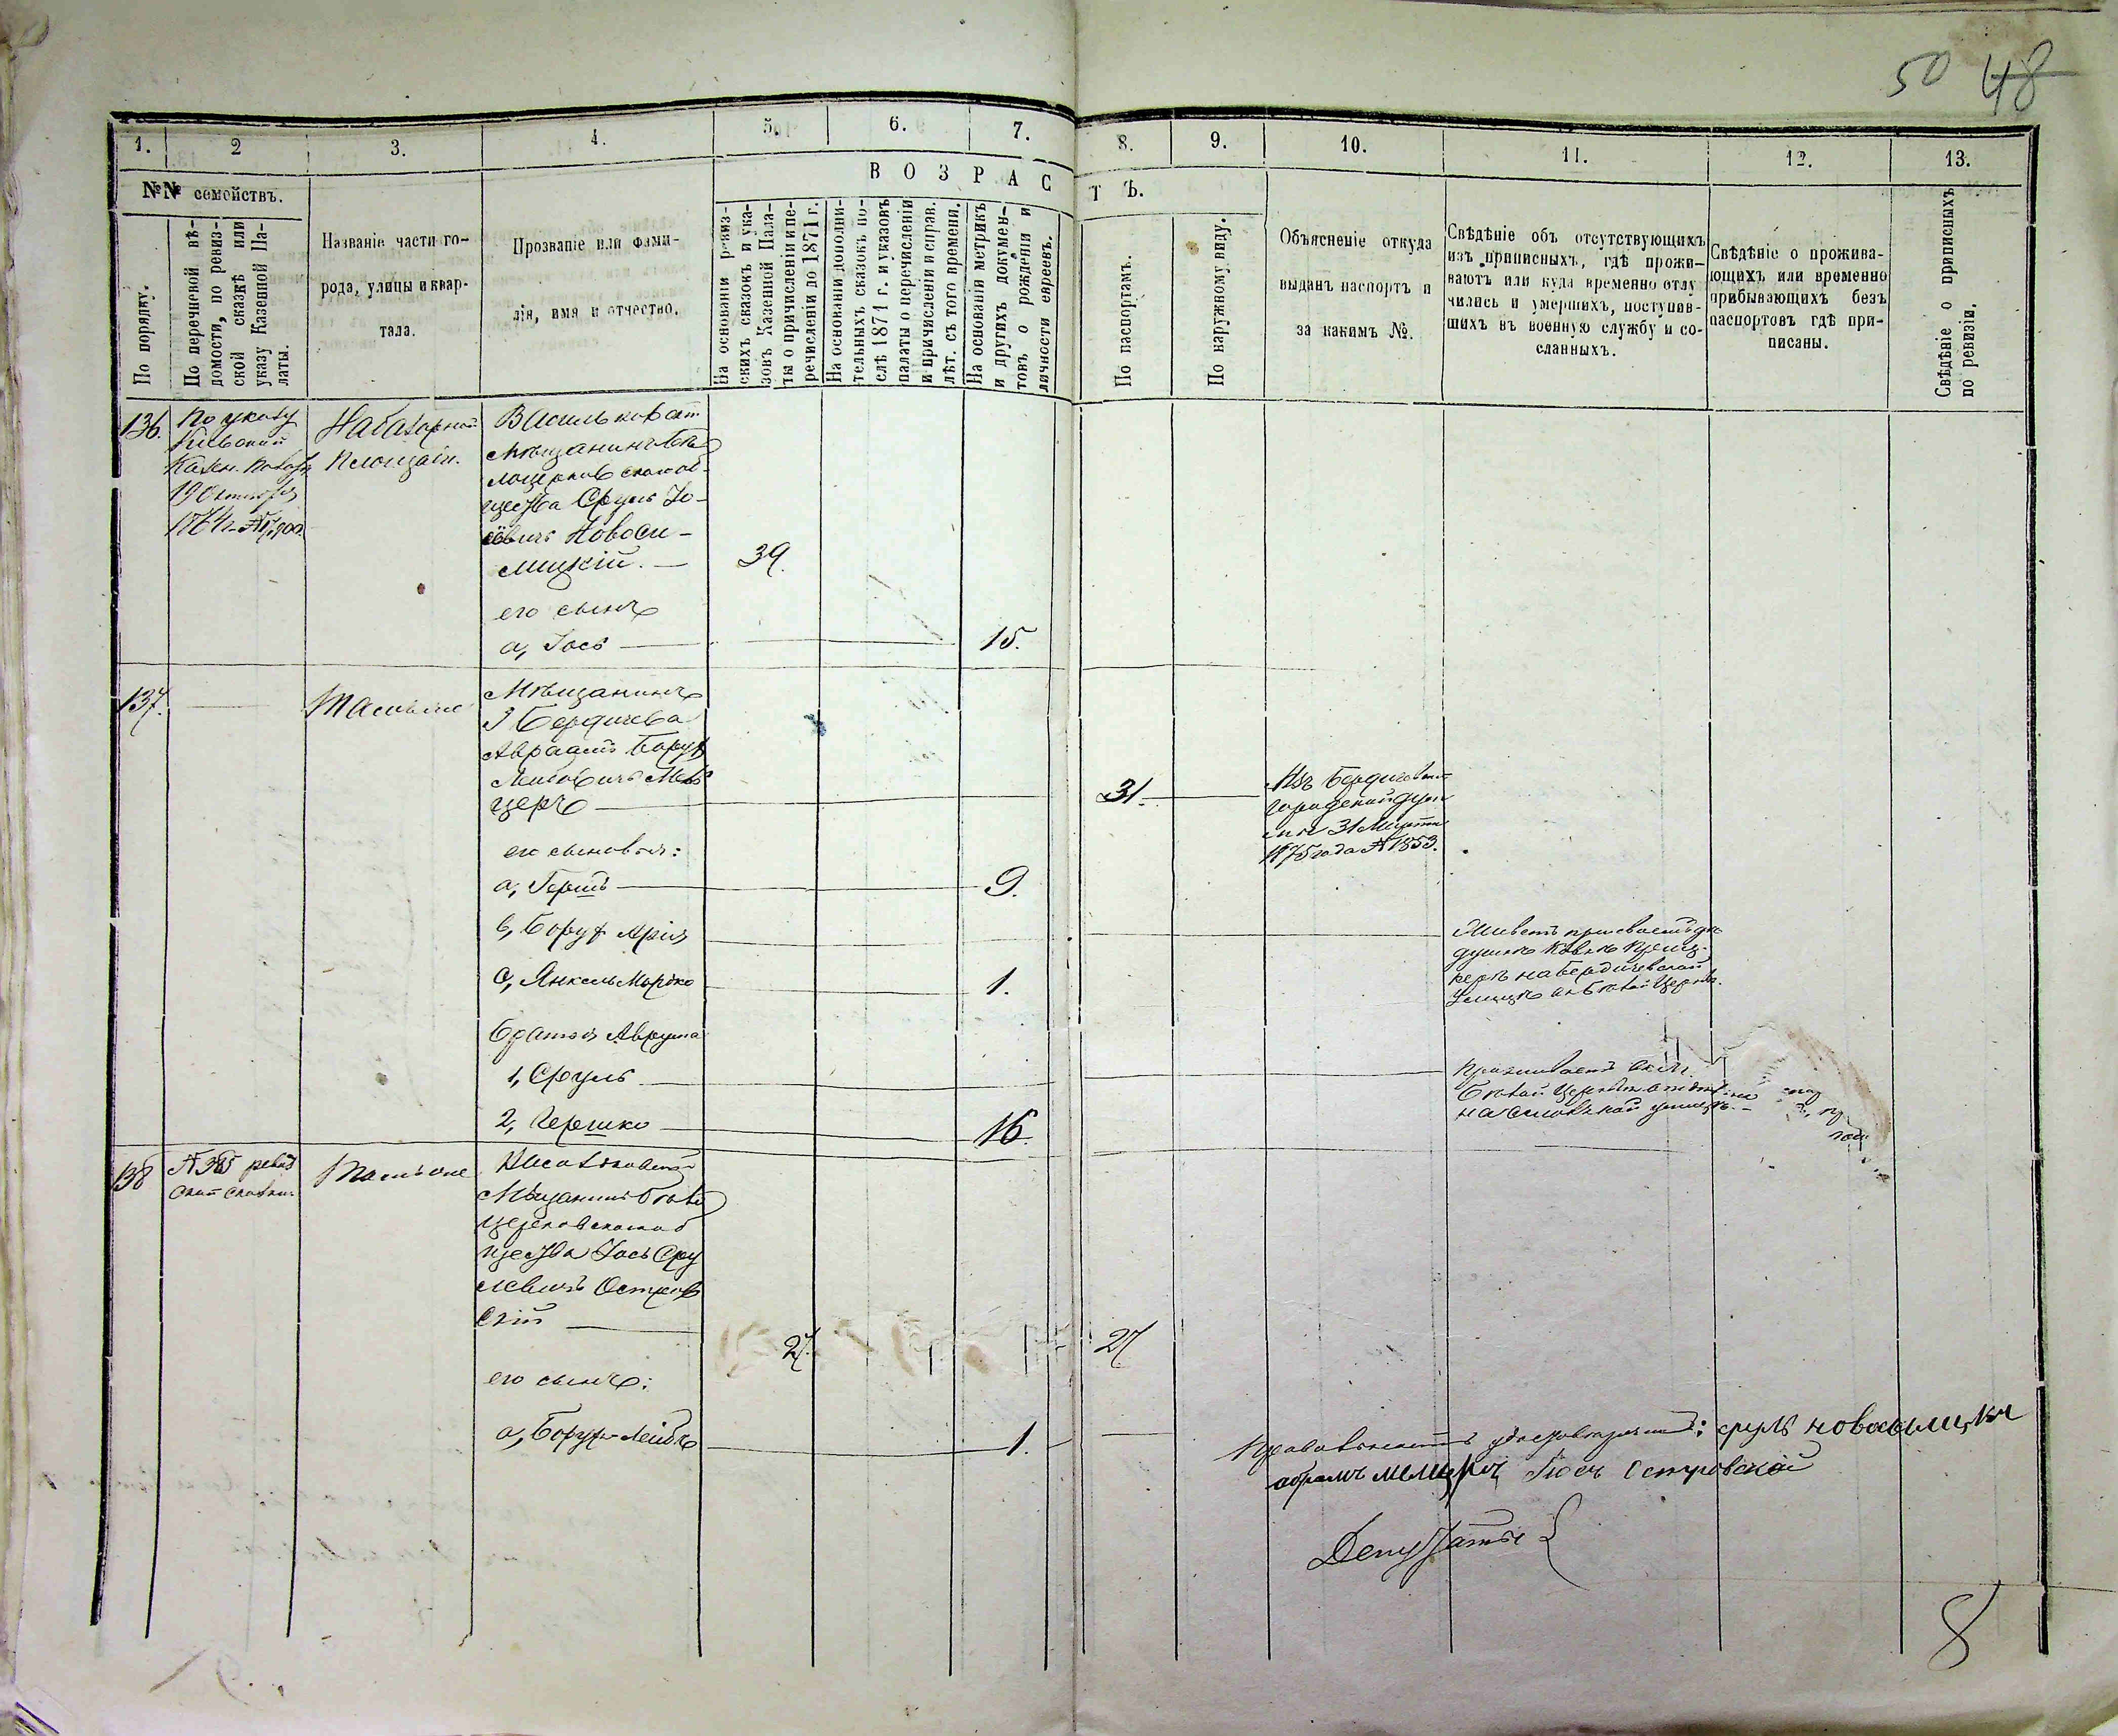 50 48
1. 2 3. 4. 5. 6. 7. 8. 9. 10. 11. 12. 13.
№№ семействъ.
ВОЗРАСТѢ.
По порядку.
По перечневой вѣ-
домости, по ревиз-
ской сказкѣ или
указу Казенной Па-
латы.
Названіе части го-
рода, улицы и квар-
тала.
Прозваніе или фами-
лія, имя и отчество.
На основаніи ревиз-
скихъ сказокъ и ука-
зовъ Казенной Пала-
ты о причисленіи и пе-
речисленіи до 1871 г.
На основаніи дополни-
тельныхъ сказокъ по-
слѣ 1871 г. и указовъ
палаты о перечисленіи
и причисленіи и справ.
лѣт. съ того времени.
На основаніи метрикъ
и другихъ докумен-
товъ о рожденіи и
личности евреевъ.
По паспортамъ.
По наружному виду.
Объясненіе откуда
выданъ паспортъ и
за какимъ №.
Свѣдѣніе объ отсутствующихъ
изъ приписныхъ, гдѣ прожи-
ваютъ или куда временно отлу
чились и умершихъ, поступив-
шихъ въ военную службу и со-
сланныхъ.
Свѣдѣніе о прожива-
ющихъ или временно
прибывающихъ безъ
паспортовъ гдѣ при-
писаны.
Свѣдѣніе о приписныхъ
по ревизіи.
136.
По указу
Кіевской
Казен. Палаты
19 Октября
На базарной
площади.
Васильковскій
Мѣщанинъ Бѣ
лоцерковскаго об-
щества Сруль Іо-
севичъ Новоси-
лицкій. — 39.
его сынъ
а, Іось — 15.
137.
Тамъ же
Мѣщанинъ
г Бердичева
Авраамъ Борух
Лейбовичъ Мель
церъ — 31.
Изъ Бердичевской
городской Ду
мы 31 Марта
1875 года № 1853.
его сыновья:
а, Герш — 9.
в, Борух Арія
Живетъ при своемъ дѣ
душкѣ
на Бердичевской
улицѣ въ Бѣлой Церкви.
с, Янкель Мордко — 1.
братья Аврума
1, Сруль
Проживаетъ въ м.
Бѣлой Церкви
на улицѣ.
2, Гершко — 16.
138
№ 385 ревиз
ской сказки
Тамъ же
Васильковскій
Мѣщанинъ Бѣло
церковскаго об
щества Іось Сру
левичъ Остров
скій — 27. 27
его сынъ:
а, Борух-Лейбъ — 1.
Правильность удостовѣряемъ: сруль новосилицкий
абрамъ мелцеръ Іосъ Островской
Депутаты {
8